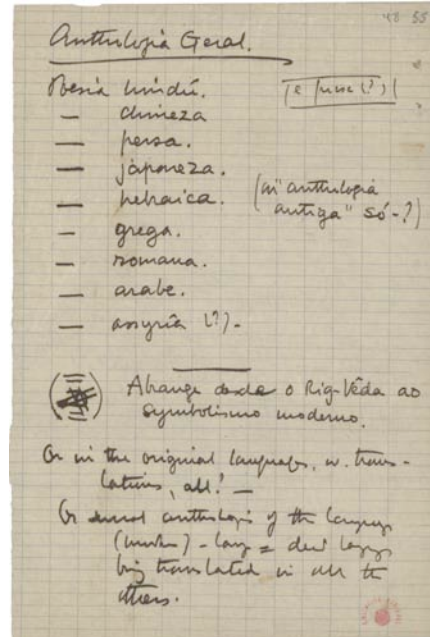 48 55
Anthologia Geral.
Poesia hindú.
— chineza
— persa.
— japoneza.
— hebraica. (na "anthologia
antiga" só-?)
— grega.
— romana.
— arabe.
— assyria (?).
Abrange desde o Rig-Vêda ao
symbolismo moderno.
Or in the original languages, w. trans-
lations, all! —
Or anthologies of the
being translated in all the
others.